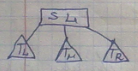 S L
TL TM TR